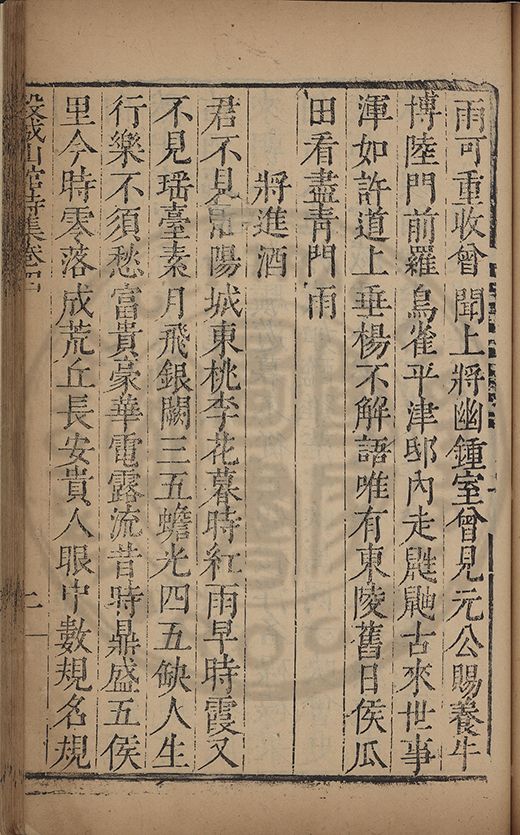 雨可重收曾聞上將幽鍾室曾見元公賜養牛
博陸門前羅鳥雀平津邸內走鼪鼬古來世事
渾如許道上垂楊不解語唯有東陵舊日侯瓜
田看盡青門雨
將進酒
君不見洛陽城東桃李花暮時紅雨早時霞又
不見瑶臺素月飛銀闕三五蟾光四五缺人生
行樂不須愁富貴豪華電露流昔時鼎盛五侯
里今時零落成荒丘長安貴人眼中數規名規
穀城山館詩集卷四
二